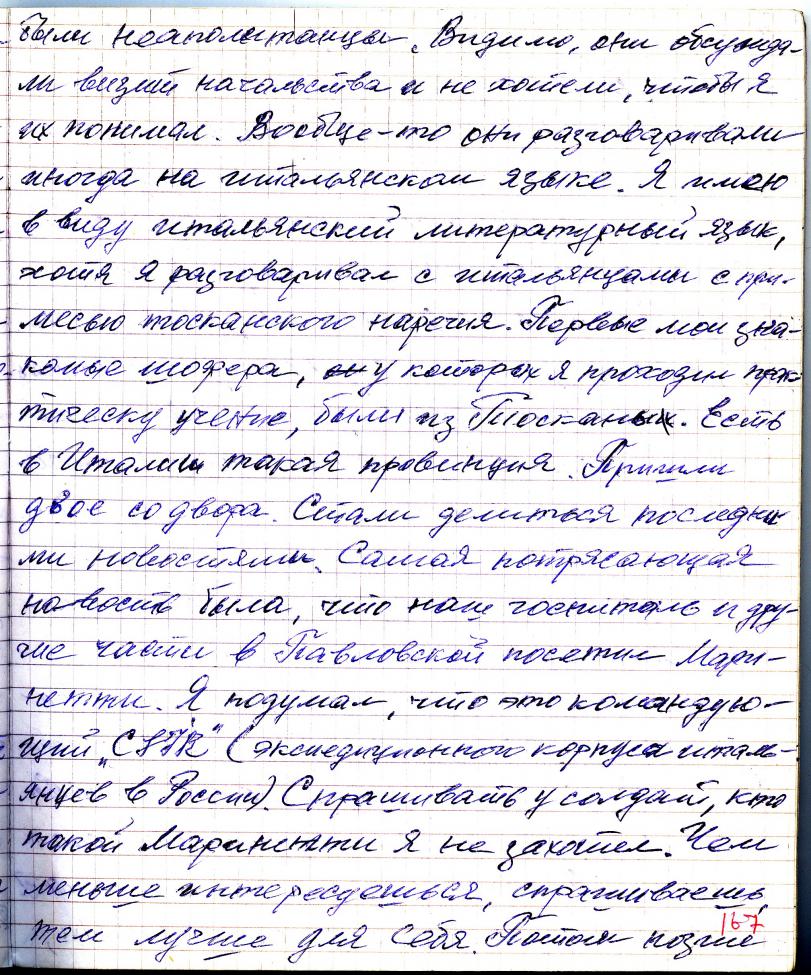 были неаполитанцы. Видимо, они обсужда-
ли визит начальства и не хотели, чтобы я
их понимал. Вообще-то они разговаривали
иногда на итальянском языке. Я имею
в виду итальянский литературный язык,
хотя я разговаривал с итальянцами с при-
месью тосканского наречия. Первые мои зна-
комые шофера, у которых я проходил прак-
тическу учение, были из Тосканы. Есть
в Италии такая провинция. Пришли
двое со двора. Стали делиться последни-
ми новостями. Самая потрясающая
новость была, что наш госпиталь и дру-
гие части в Павловской посетил Мари-
нетти. Я подумал, что это командую-
щий (экспедиционного корпуса италь-
янцев в России). Спрашивать у солдат, кто
такой Маринетти я не захотел. Чем
меньше интересуешься, спрашиваешь,
тем лучше для себя. Потом позже
167